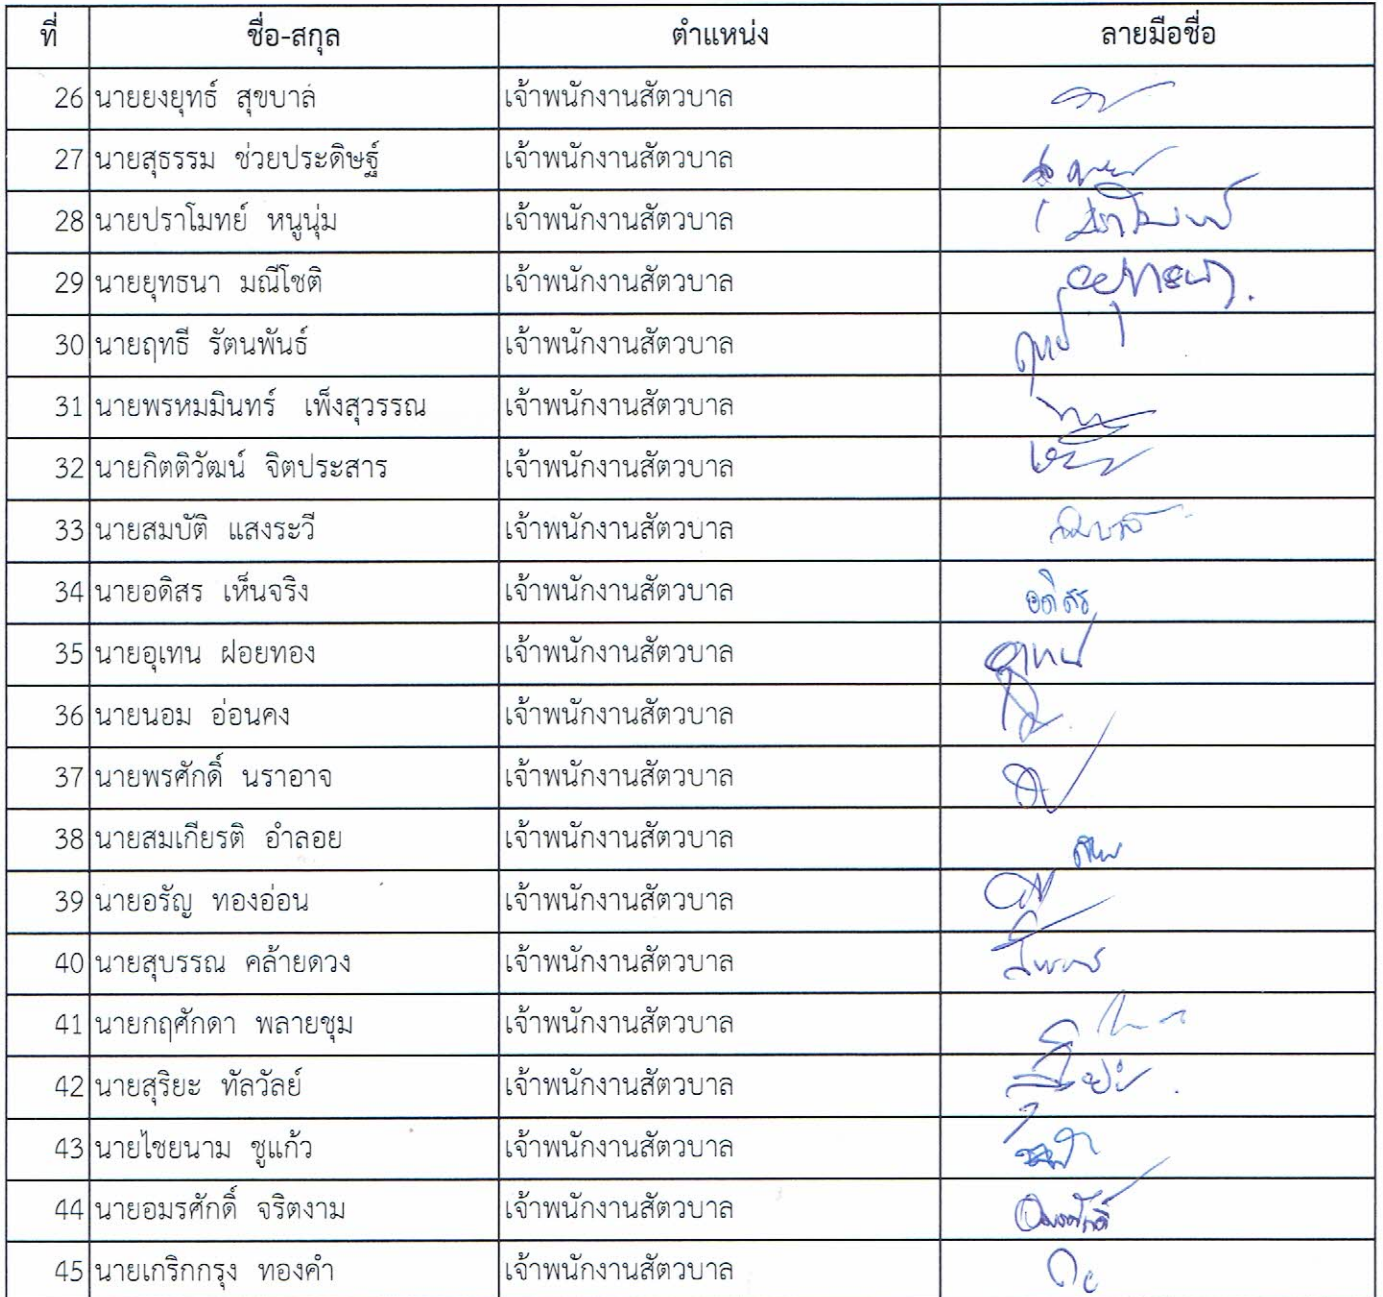 ที่ ชื่อ-สกุล ตำแหน่ง ลายมือชื่อ
26 นายยงยุทธ์ สุขบาล เจ้าพนักงานสัตวบาล
27 นายสุธรรม ช่วยประดิษฐ์ เจ้าพนักงานสัตวบาล
28 นายปราโมทย์ หนูนุ่ม เจ้าพนักงานสัตวบาล
29 นายยุทธนา มณีโชติ เจ้าพนักงานสัตวบาล
30 นายฤทธี รัตนพันธ์ เจ้าพนักงานสัตวบาล
31 นายพรหมมินทร์ เพ็งสุวรรณ เจ้าพนักงานสัตวบาล
32 นายกิตติวัฒน์ จิตประสาร เจ้าพนักงานสัตวบาล
33 นายสมบัติ แสงระวี เจ้าพนักงานสัตวบาล
34 นายอดิสร เห็นจริง เจ้าพนักงานสัตวบาล อดิสร
35 นายอุเทน ฝอยทอง เจ้าพนักงานสัตวบาล
36 นายนอม อ่อนคง เจ้าพนักงานสัตวบาล
37 นายพรศักดิ์ นราอาจ เจ้าพนักงานสัตวบาล
38 นายสมเกียรติ อำลอย เจ้าพนักงานสัตวบาล
39 นายอรัญ ทองอ่อน เจ้าพนักงานสัตวบาล
40 นายสุบรรณ คล้ายดวง เจ้าพนักงานสัตวบาล
41 นายกฤศักดา พลายชุม เจ้าพนักงานสัตวบาล
42 นายสุริยะ ทัลวัลย์ เจ้าพนักงานสัตวบาล
43 นายไชยนาม ชูแก้ว เจ้าพนักงานสัตวบาล
44 นายอมรศักดิ์ จริตงาม เจ้าพนักงานสัตวบาล อมรศักดิ์
45 นายเกริกกรุง ทองคำ เจ้าพนักงานสัตวบาล